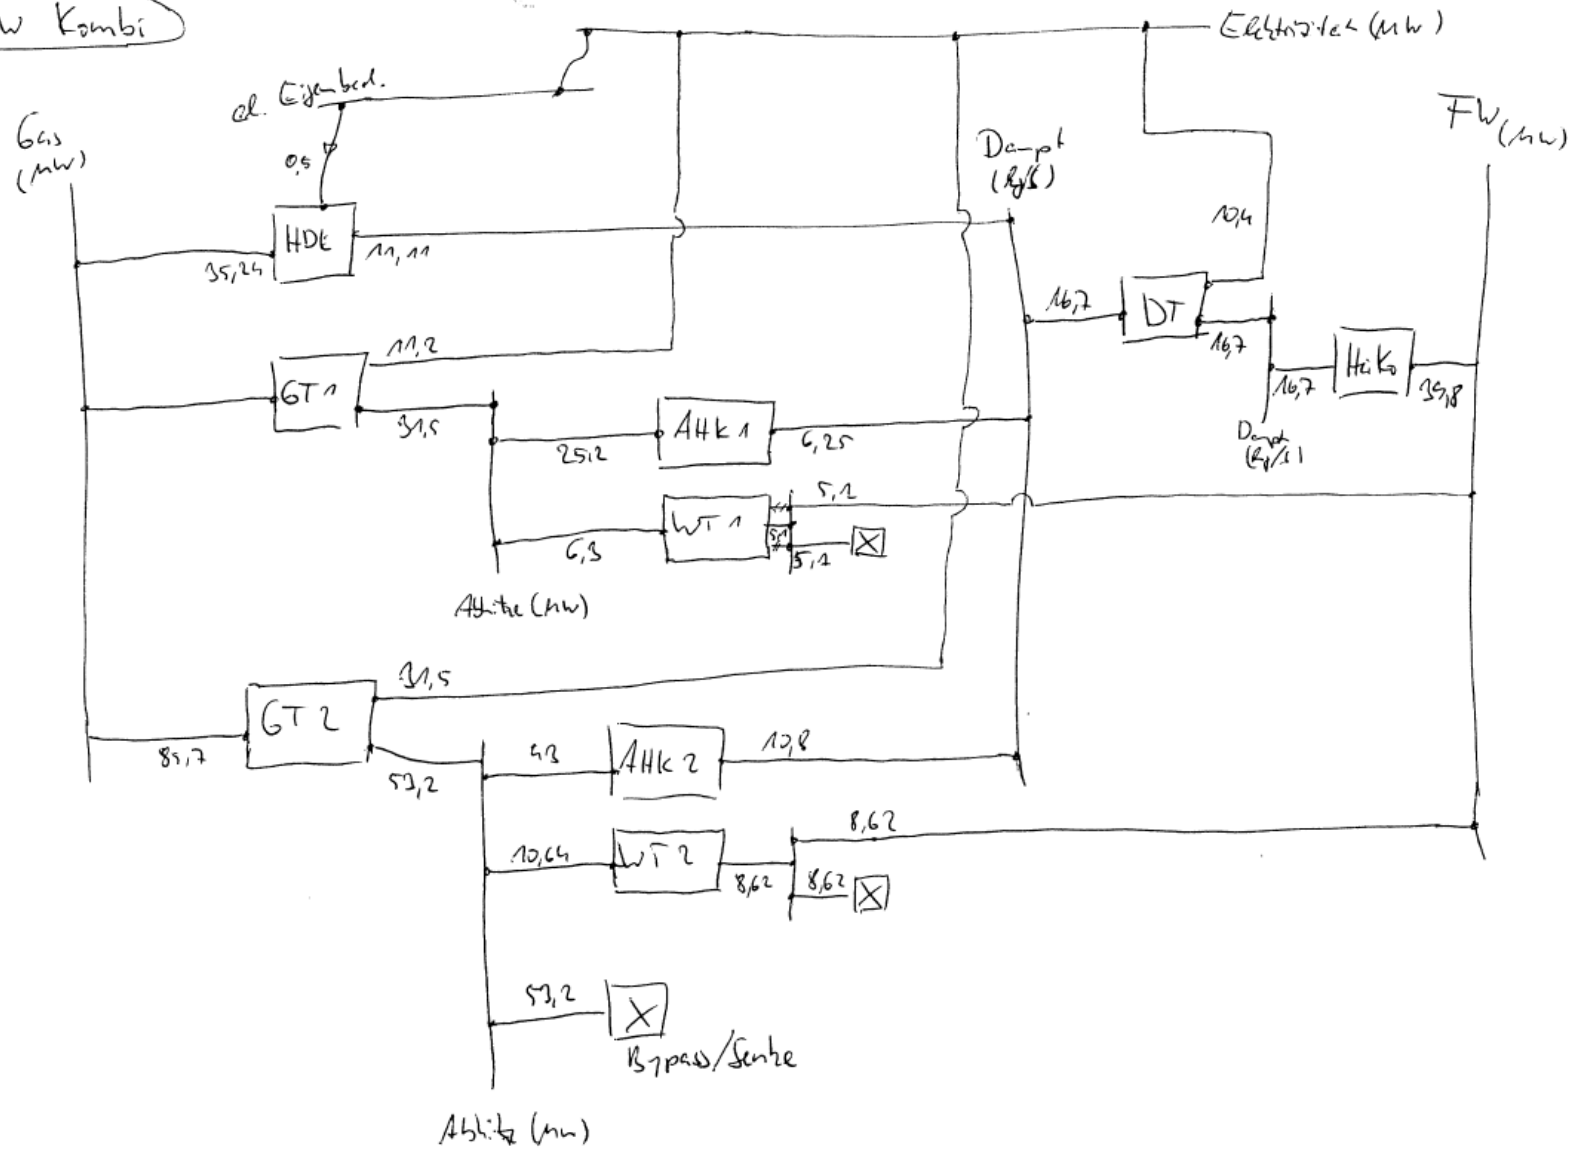 Kombi
Elektrizität (MW)
el. Eigenbed.
Gas
(MW)
FW (MW)
Dampf
(kg/s)
0,5
HDE
35,24
11,11
10,4
16,7
DT
16,7
16,7
HeiKo
39,8
Dampf
(kg/s)
GT1
11,2
31,5
25,2
AHK1
6,25
6,3
WT1
5,1
5,1
5,1
X
Abhitze (MW)
GT2
85,7
31,5
53,2
43
AHK2
10,8
10,64
WT2
8,62
8,62
8,62
X
53,2
X
Bypass/Senke
Abhitze (MW)